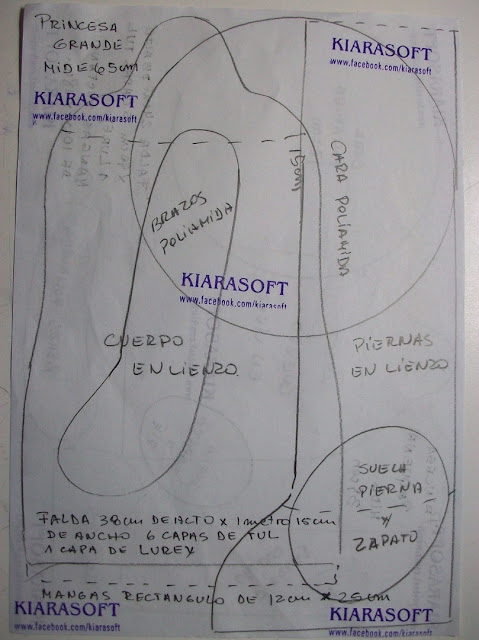 PRINCESA
GRANDE
MIDE 65cm
KIARASOFT
www.facebook.com/kiarasoft
KIARASOFT
www.facebook.com/kiarasoft
15cm
CARA POLIAMIDA
BRAZOS
POLIAMIDA
KIARASOFT
www.facebook.com/kiarasoft
CUERPO
EN LIENZO
PIERNAS
EN LIENZO
SUELA
PIERNA
y/
ZAPATO
FALDA 38cm DE ALTO x 1 metro 15cm
DE ANCHO 6 CAPAS DE TUL
1 CAPA DE LUREX
MANGAS RECTANGULO DE 12cm x 25cm
KIARASOFT
www.facebook.com/kiarasoft
KIARASOFT
www.facebook.com/kiarasoft